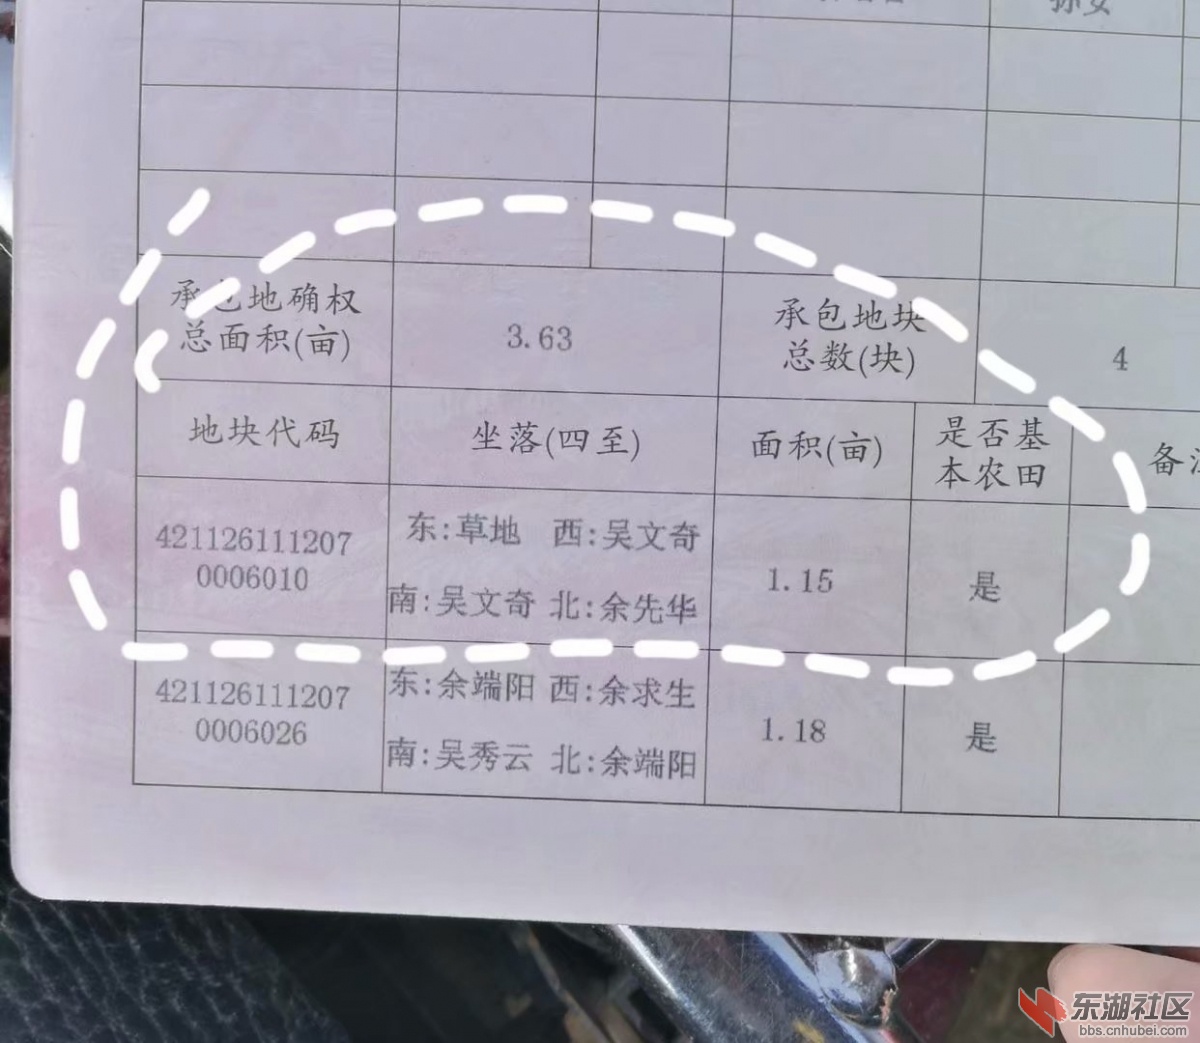 孙女
承包地确权
总面积(亩)
3.63
承包地块
总数(块)
4
地块代码
坐落(四至)
面积(亩)
是否基
本农田
备注
421126111207
0006010
东:草地 西:吴文奇
南:吴文奇 北:余先华
1.15
是
421126111207
0006026
东:余端阳 西:余求生
南:吴秀云 北:余端阳
1.18
是
东湖社区
bbs.cnhubei.com